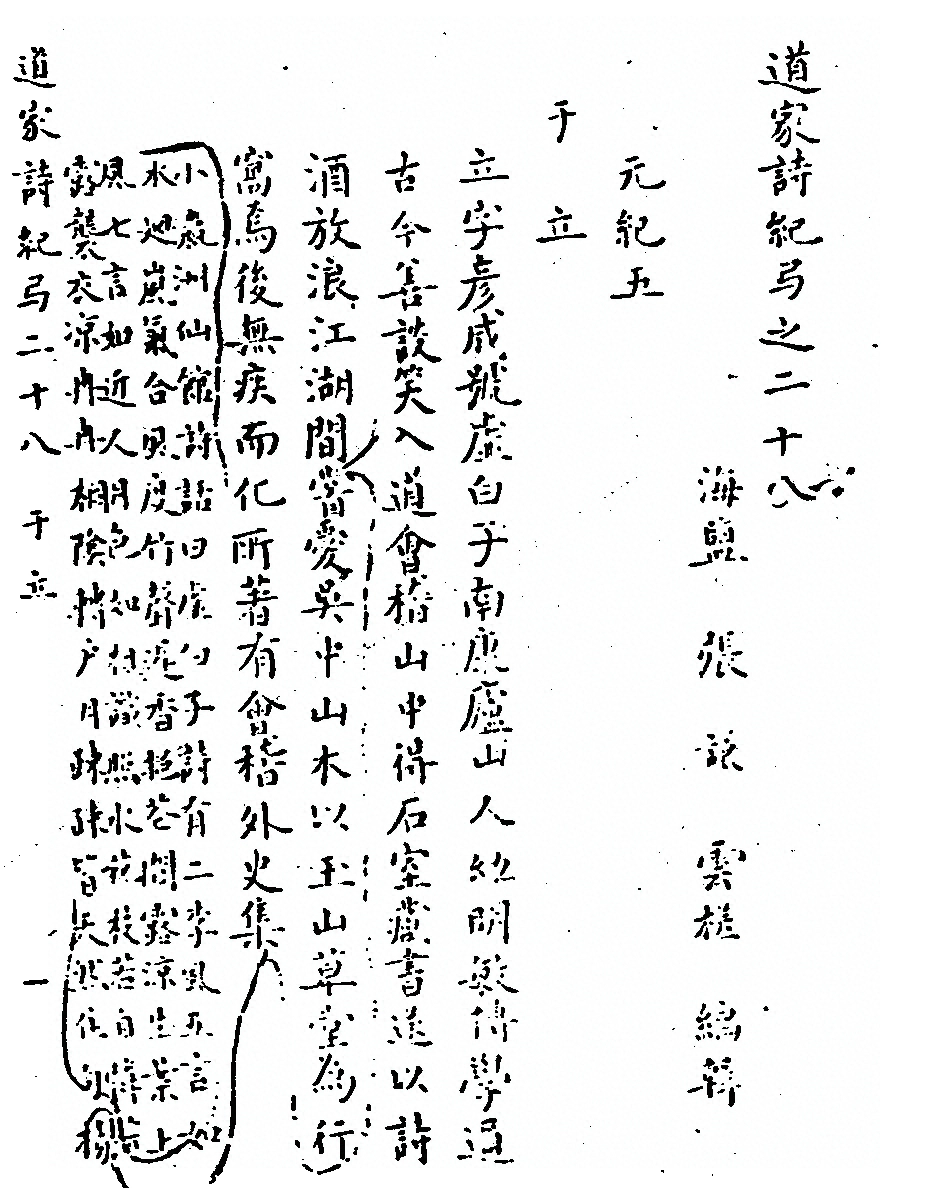 道家詩紀弓之二十八
海鹽 張 謙 雲槎 編輯
元紀五
于 立
立字彥成號虛白子南康廬山人 明敏博學通
古今善談笑入道會稽山中得石室藏書遂以詩
酒放浪江湖間嘗愛吳中山水以玉山草堂為行
窩焉後無疾而化所著有會稽外史集
小瀛洲仙館詩話曰虛白子詩有二李風五言如
水 嵐氣合風度竹聲 香 露涼生葉上
風七言如近人月色如相識照水 枝若自
露襲衣涼冉冉桐陰轉戶月疎疎皆天然佳句楊
道家詩紀弓二十八 于立 一